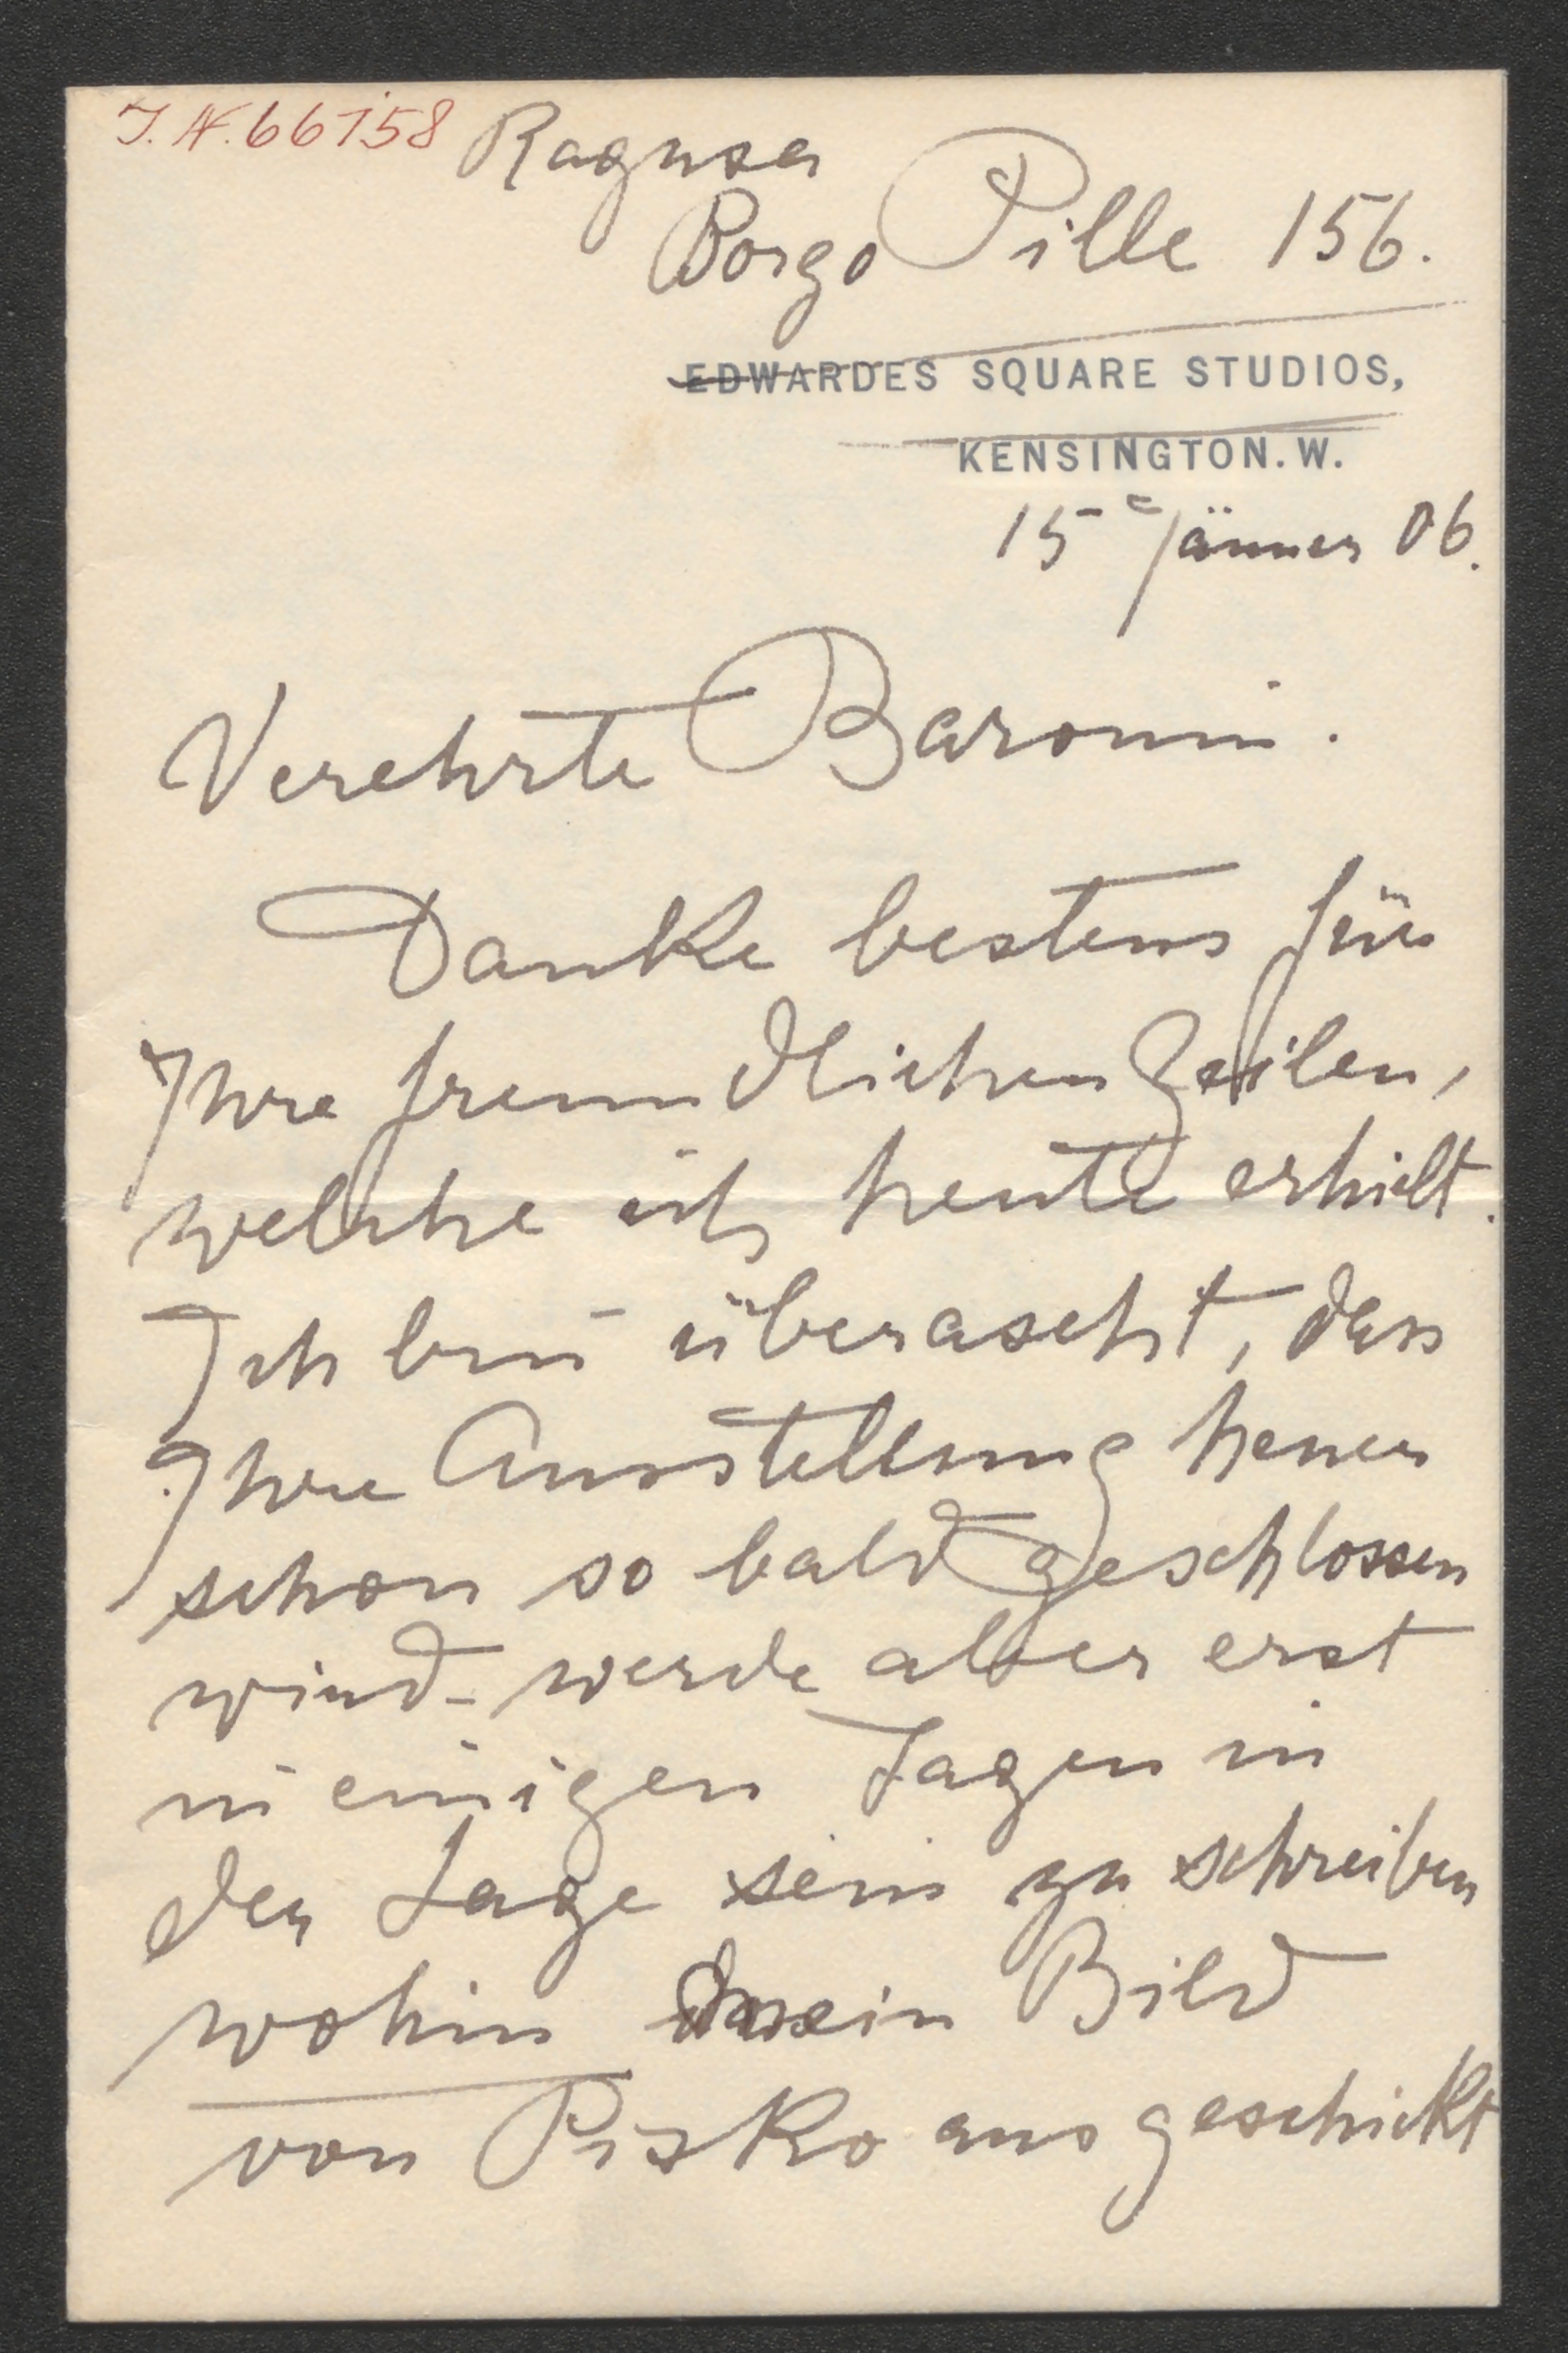 J.N. 66158
Ragusa
Borgo Pille 156.
EDWARDES SQUARE STUDIOS,
KENSINGTON. W.
15 Jänner 06.
Verehrte Baronin.
Danke bestens für
Ihre freundlichen Zeilen,
welche ich heute erhielt.
Ich bin überascht, dass
Ihre Ausstellung heuer
schon so bald geschlossen
wird - werde aber erst
in einigen Tagen in
der Lage sein zu schreiben
wohin mein Bild
von Pisko aus geschickt